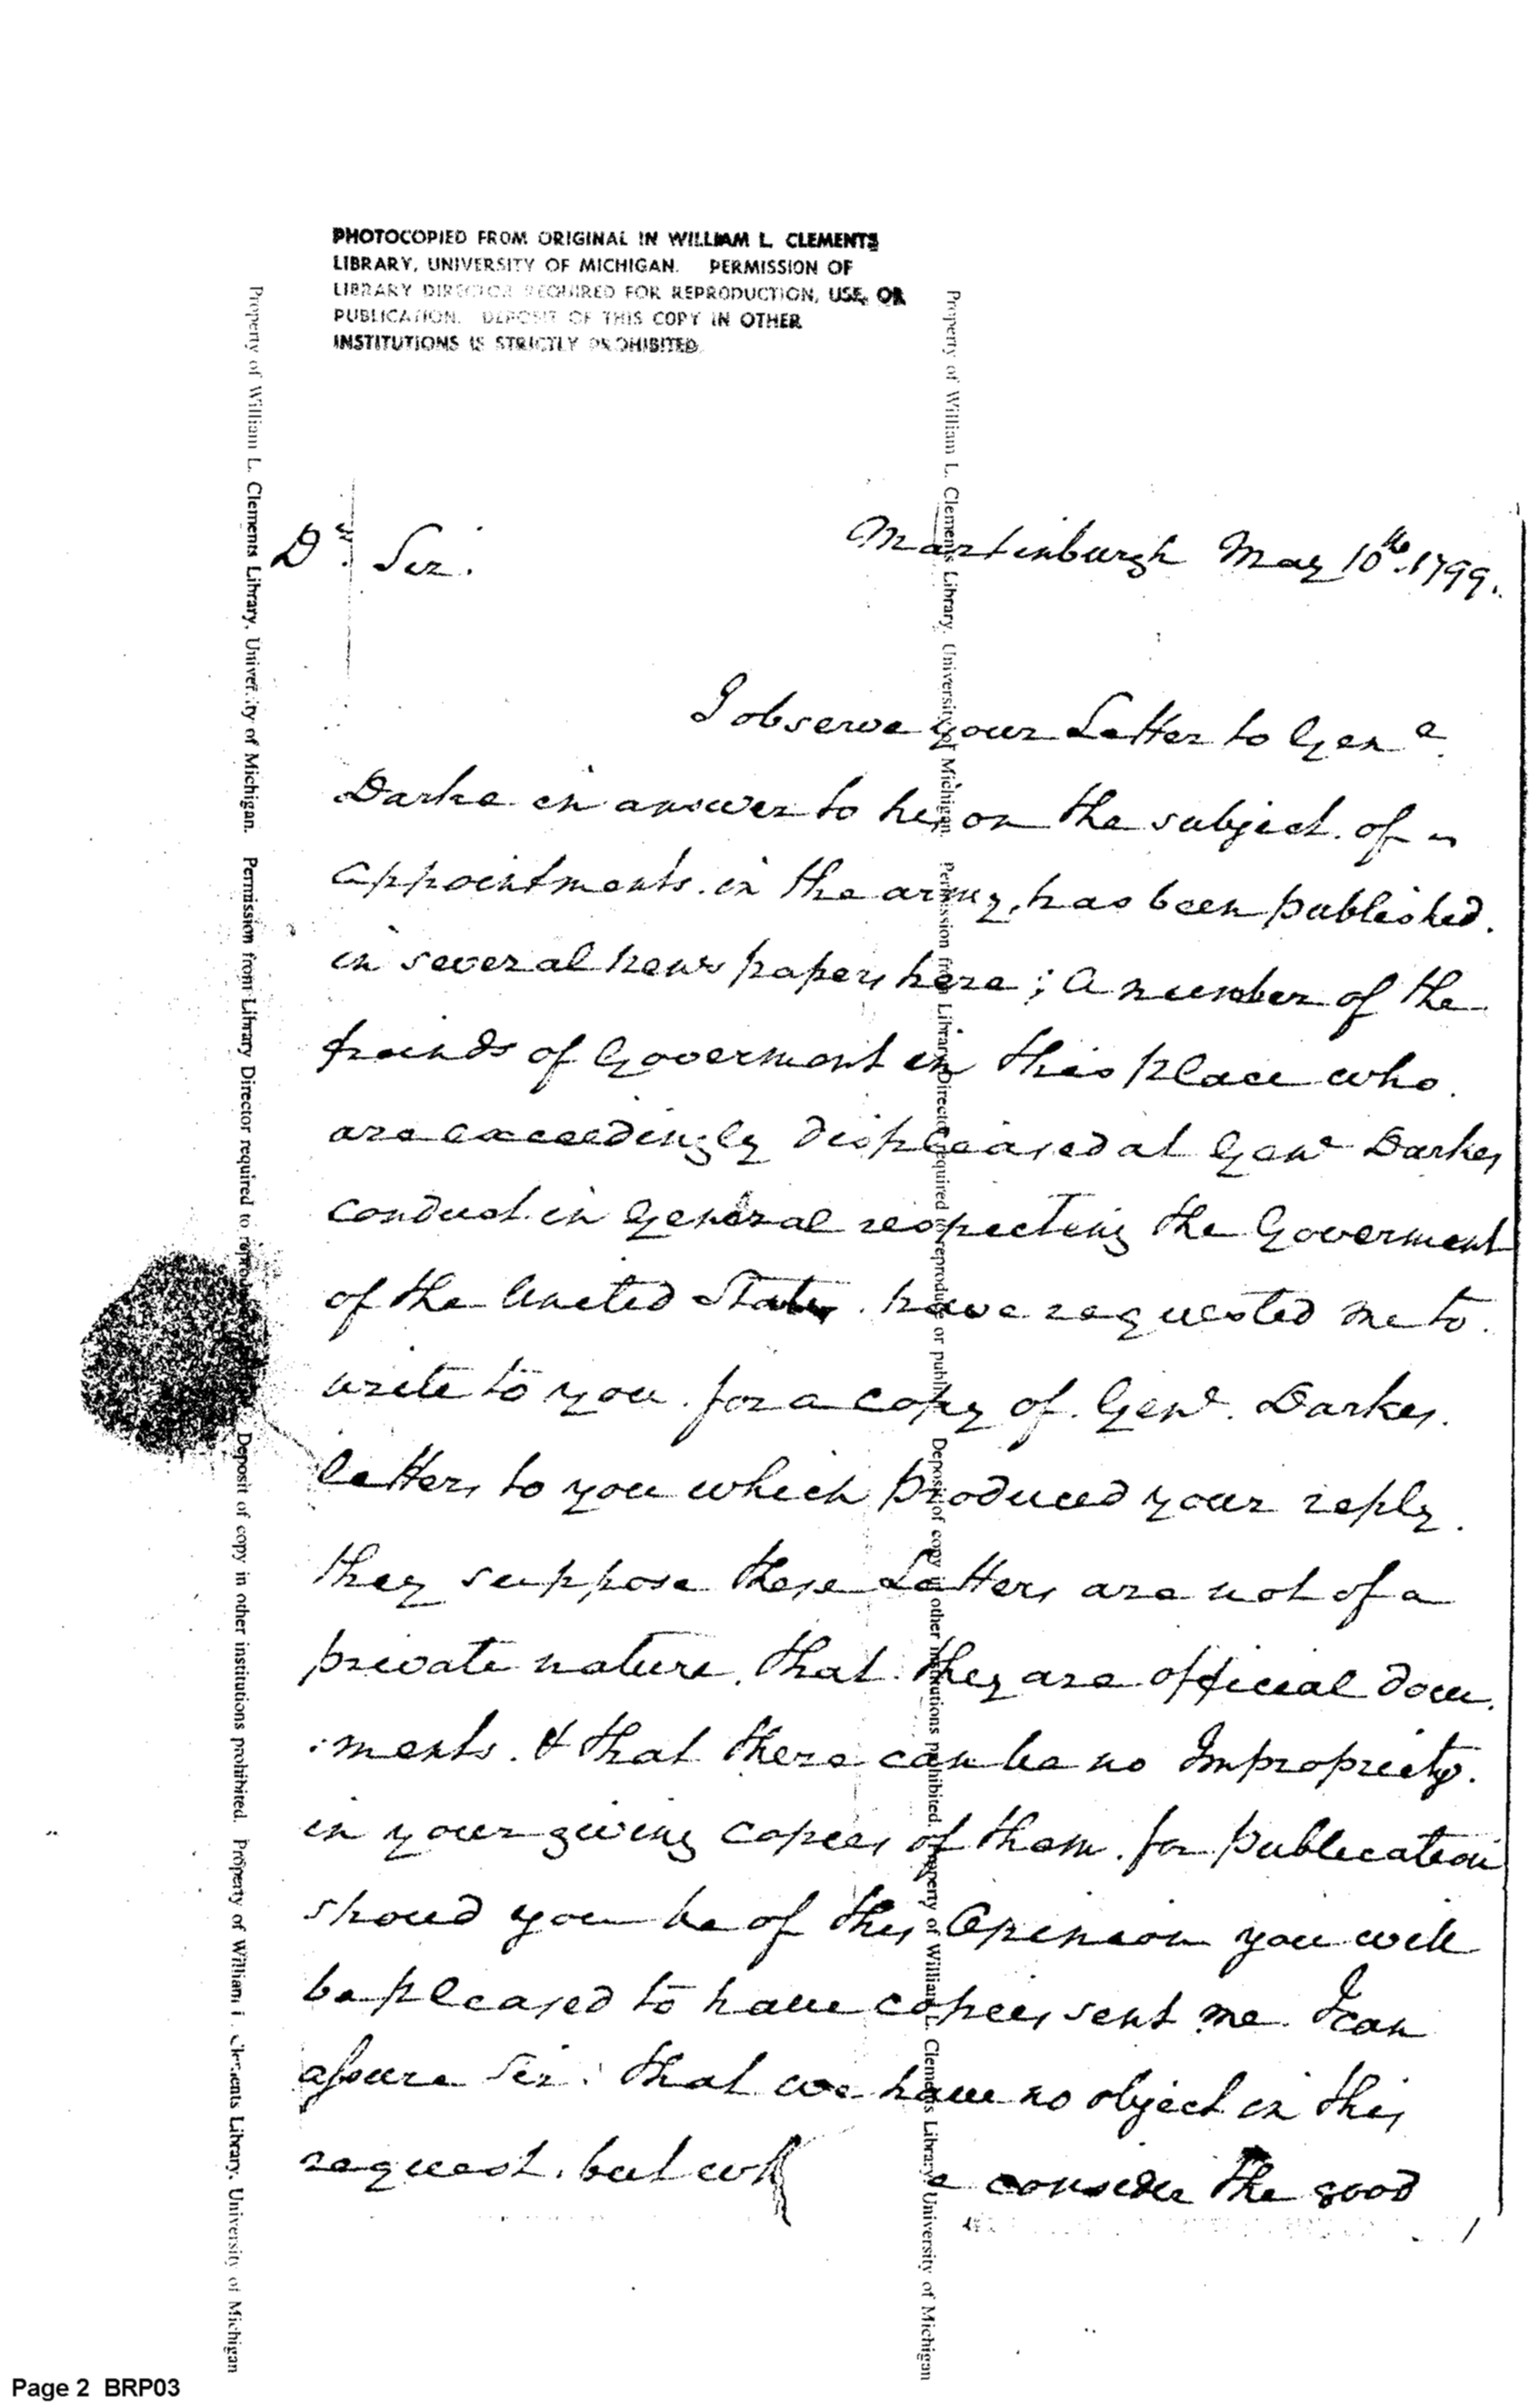 PHOTOCOPIED FROM ORIGINAL IN WILLIAM L. CLEMENTS
LIBRARY, UNIVERSITY OF MICHIGAN. PERMISSION OF
LIBRARY DIRECTOR REQUIRED FOR REPRODUCTION, USE, OR
PUBLICATION. DEPOSIT OF THIS COPY IN OTHER
INSTITUTIONS IS STRICTLY PROHIBITED.
Property of William L. Clements Library, University of Michigan. Permission from Library Director required to reproduce or publish. Deposit of copy in other institutions prohibited. Property of William L. Clements Library, University of Michigan
Property of William L. Clements Library, University of Michigan. Permission from Library Director required to reproduce or publish. Deposit of copy in other institutions prohibited. Property of William L. Clements Library, University of Michigan
Martinburgh May 10th. 1799.
Dr. Sir.
I observe your Letter to Genl.
Darke in answer to his on the subject of
appointments in the army, has been published.
in several news papers here; A number of the
friends of Goverment in this place who.
are exceedingly displeased at Genl Darkes
conduct in General respecting the Goverment
of the United States. have requested me to.
write to you. for a copy of. Genl. Darkes.
letters to you which produced your reply.
they suppose these Letters are not of a
private nature. that they are official docu.
:ments. & that there can be no Impropriety.
in your giving copies of them. for publication
shoud you be of this Opinion you will
be pleased to have copies sent me. I can
assure Sir. that we have no object in this
request. but wh e consider the good
Page 2 BRP03